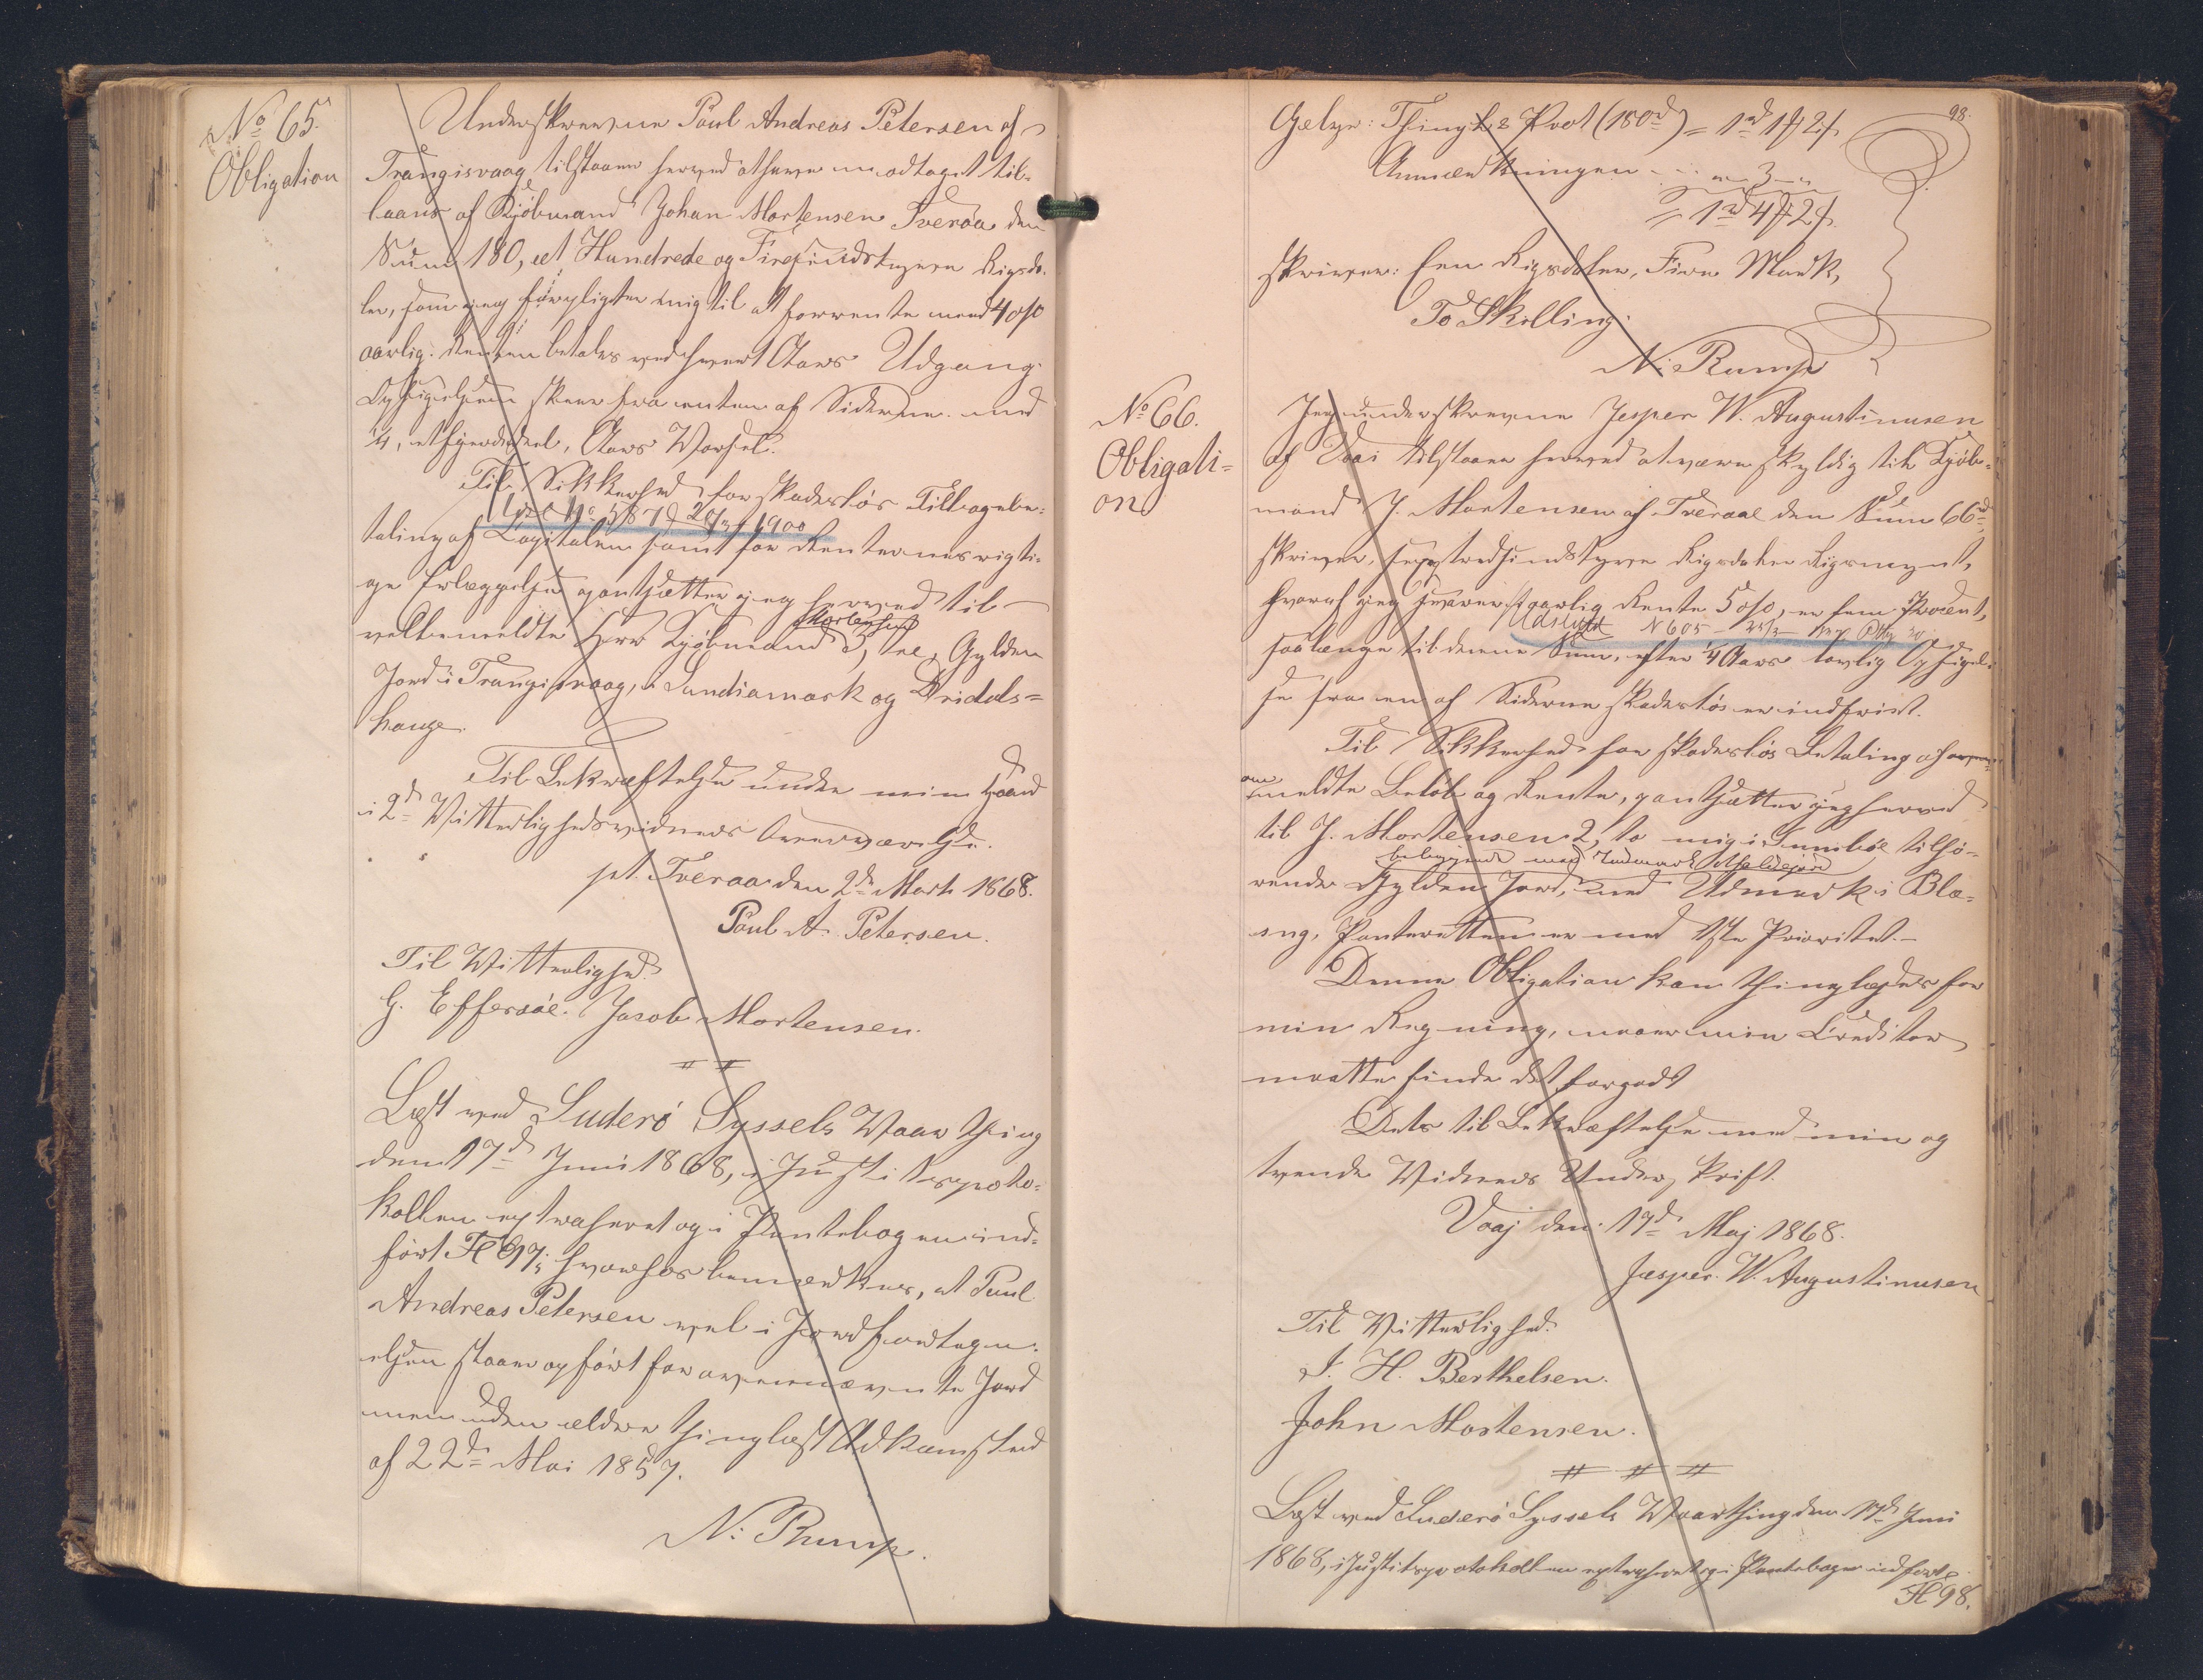 No 65.
Obligation
Underskrevne Poul Andreas Petersen af
Trangisvaag tilstaaer herved at have modtaget til-
laans af Kjöbmand Johan Mortensen Tveraa den
Sum 180, et Hundrede og Firesindstyve Rigsda-
ler, som jeg forpligter mig til at forrente med 4 o/o
aarlig. Renten betales ved hvert Aars Udgang.
Opsigelsen skeer fra enten af Siderne med
1/4, et fjerdedeel, Aars Varsel.
Til Sikkerhed for skadeslös Tilbagebe-
No 587 1900
taling af Capitalen samt for Renternes rigti-
ge Erlæggelse pantsætter jeg herved til
Mortensen
velbemeldte Herr Kjöbmand 3, tre, Gylden
Jord i Trangisvaag, i Sandiamark og Dridals-
hauge.
Til Bekræftelse under min Haand
i 2de Vitterlighedsvidners Overværelse.
pt. Tveraa den 2den Marts 1868.
Poul A. Petersen.
Til Vitterlighed.
G. Effersöe. Jacob Mortensen.
Læst ved Suderö Syssels Vaar Thing
den 17de Juni 1868, i Justitsproto-
kollen extraheret og i Pantebogen ind-
fört Fl 97; hvorhos bemærkes, at Poul
Andreas Petersen vel i Jordfortegn-
elsen staaer opfört for ovennævnte Jord
men uden ældre thinglæst Adkomst end
af 22de Mai 1857.
N: Rump.
98.
Gebyr: Thingl. & Prot (180rd) = 1rd 1 # 2 s.
Anmærkningen - - " 3 "
= 1rd 4 # 2 s.
skriver: Een Rigsdaler, Fire Mark,
To Skilling.
N: Rump
No 66.
Obligati-
on
Jeg underskrevne Jesper W. Augustinusen
af Vaai tilstaaer herved at være skyldig til Kjöb-
mand J. Mortensen af Tveraae den Sum 66rd,
skriver, sextredsindstyve Rigsdaler Rigsmynt,
hvoraf jeg svarer aarlig Rente 5 o/o, er fem Procent,
Udslettet N 605 - 25/3
saalænge til denne Sum, efter 1/4 Aars lovlig Opsigel-
se fra en af Siderne skadeslös er indfriet.
Til Sikkerhed for skadeslös Betaling af oven-
meldte Belöb og Rente, pantsætter jeg herved
til J. Mortensen 2, to mig i Sumböe tilhö-
beliggende med Indmark
rende Gylden Jord, med Udmark i Blæ-
ng, Panteretten er med 1ste Prioritet.
Denne Obligation kan thinglæses for
min Regning, naar min Creditor
maatte finde det forgodt
Dets til Bekræftelse med min og
tvende Vidners Underskrift.
Vaaj den 17de Maj 1868.
Jesper. W. Augustinusen
Til Vitterlighed.
J. H. Berthelsen.
John Mortensen.
Læst ved Suderö Syssels Vaarthing den 17de Juni
1868, i Justitsprotokollen extraheret og i Pantebogen indfört
Fl 98.